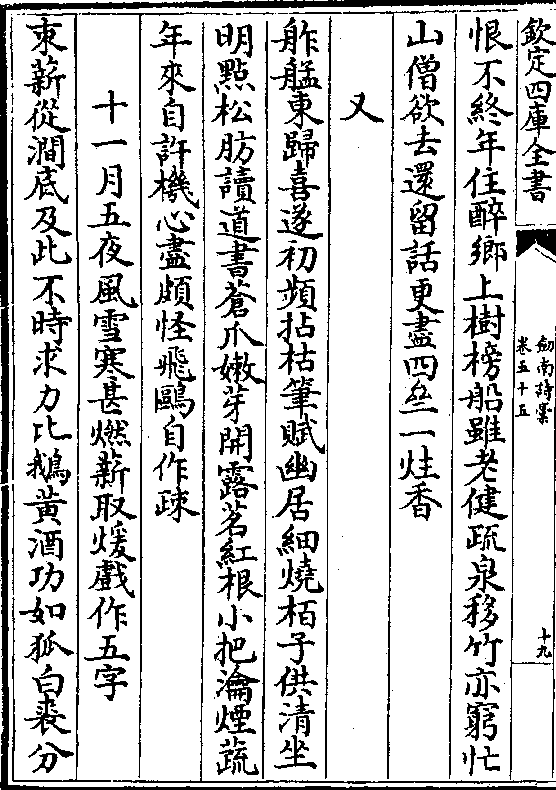 欽定四庫全書
劒南詩槀
卷五十五
十九
恨不終年住醉鄉上樹榜船雖老健疏泉移竹亦窮忙
山僧欲去還留話更盡四叁一炷香
又
舴艋東歸喜遂初頻拈枯筆賦幽居細燒栢子供清坐
明點松肪讀道書蒼爪嫩芽開露茗紅根小把瀹煙蔬
年來自許機心盡頗怪飛鷗自作疎
十一月五夜風雪寒甚燃薪取煖戲作五字
束薪從澗底及此不時求力比鵝黄酒功如狐白裘分